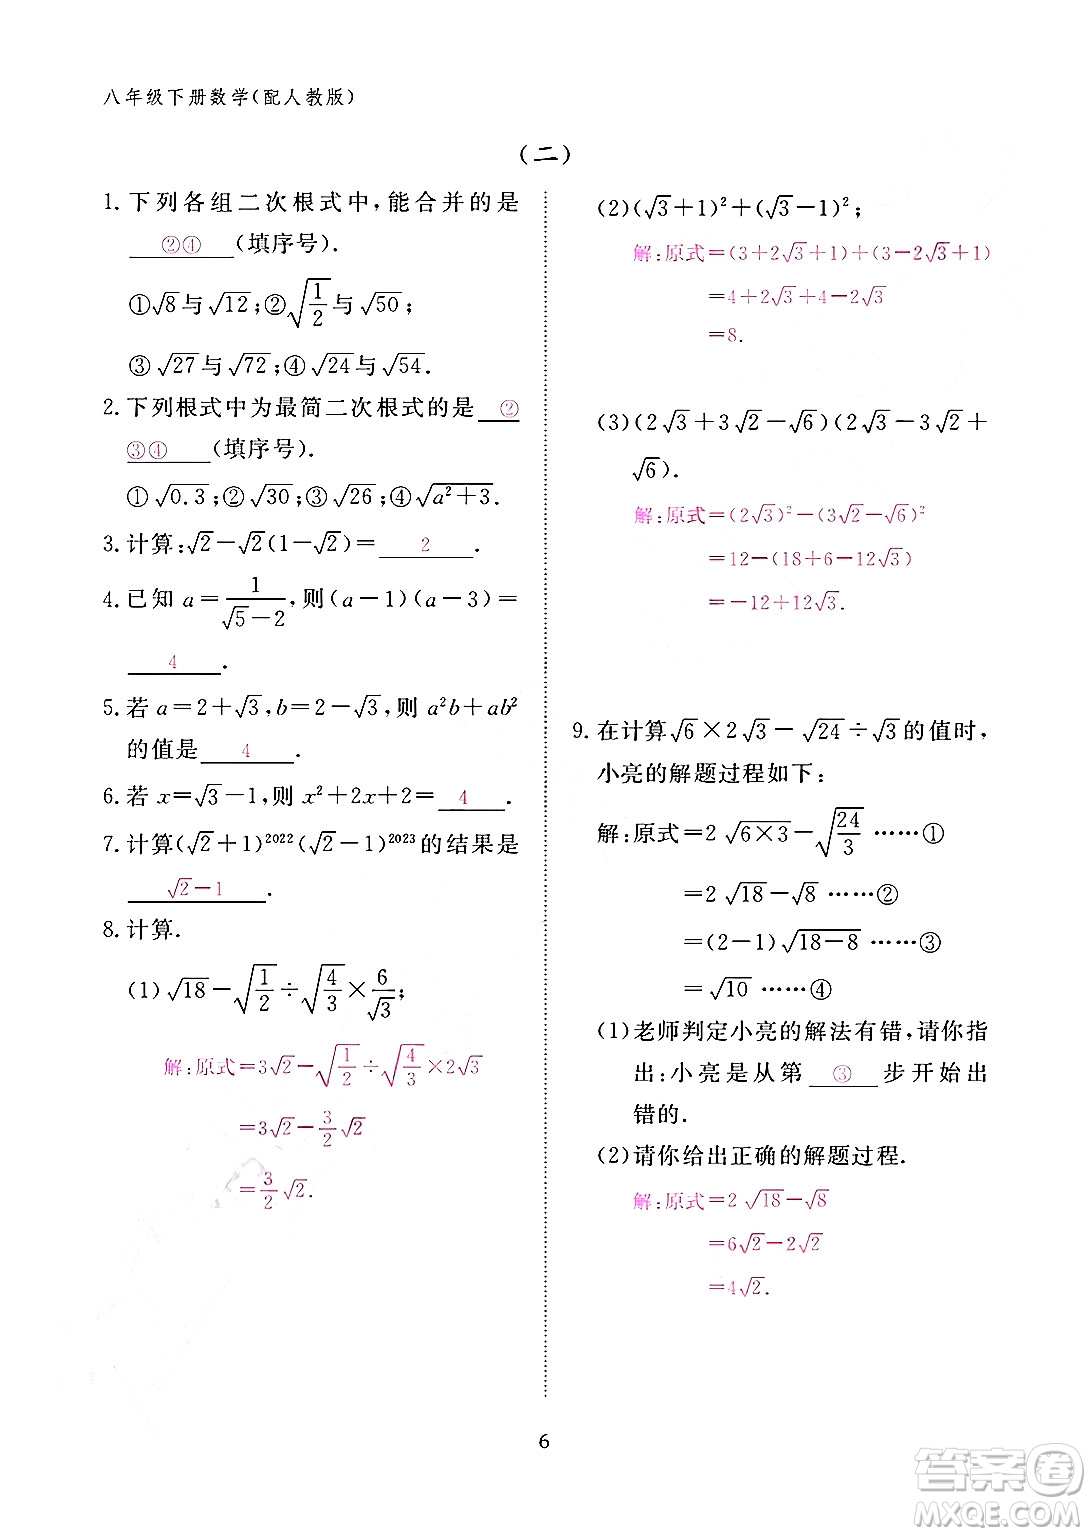 八年级下册数学(配人教版)
(二)
1. 下列各组二次根式中,能合并的是
②④ (填序号).
①√8与√12;②√(1/2)与√50;
③√27与√72;④√24与√54.
2. 下列根式中为最简二次根式的是 ②
③④ (填序号).
①√0.3;②√30;③√26;④√(a²+3).
3. 计算:√2-√2(1-√2)= 2 .
4. 已知 a=1/(√5-2),则(a-1)(a-3)=
4 .
5. 若 a=2+√3,b=2-√3,则 a²b+ab²
的值是 4 .
6. 若 x=√3-1,则 x²+2x+2= 4 .
7. 计算(√2+1)²⁰²²(√2-1)²⁰²³的结果是
√2-1 .
8. 计算.
(1)√18-√(1/2)÷√(4/3)×6/√3;
解:原式=3√2-√(1/2)÷√(4/3)×2√3
=3√2-3/2√2
=3/2√2.
(2)(√3+1)²+(√3-1)²;
解:原式=(3+2√3+1)+(3-2√3+1)
=4+2√3+4-2√3
=8.
(3)(2√3+3√2-√6)(2√3-3√2+
√6).
解:原式=(2√3)²-(3√2-√6)²
=12-(18+6-12√3)
=-12+12√3.
9. 在计算√6×2√3-√24÷√3的值时,
小亮的解题过程如下:
解:原式=2√(6×3)-√(24/3) ……①
=2√18-√8 ……②
=(2-1)√(18-8) ……③
=√10 ……④
(1)老师判定小亮的解法有错,请你指
出:小亮是从第 ③ 步开始出
错的.
(2)请你给出正确的解题过程.
解:原式=2√18-√8
=6√2-2√2
=4√2.
6
答案圈
MXQE.COM